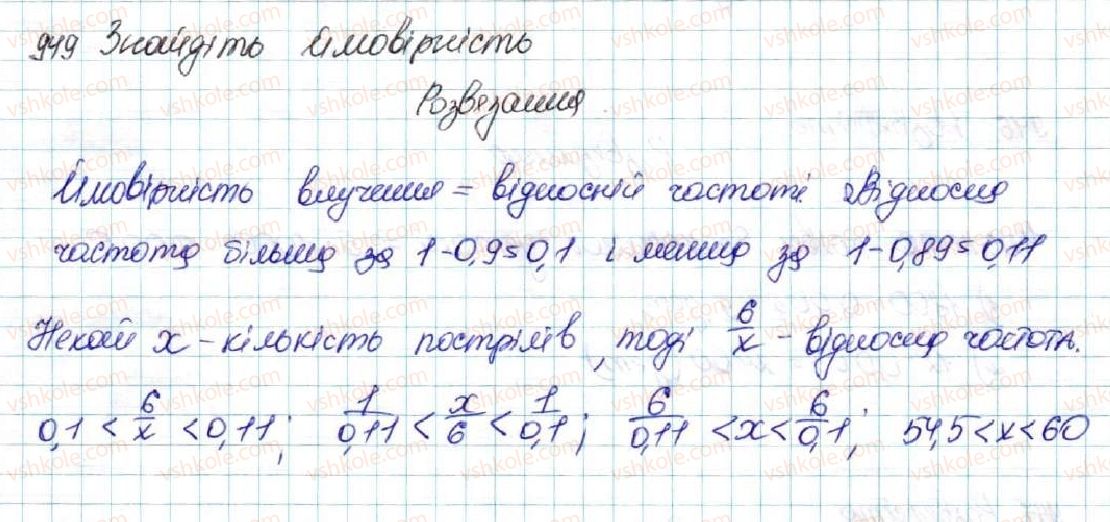 949 Знайдіть ймовірність
Розвязання
Ймовірність влучення = відносній частоті. Відносна
частота більша за 1-0,9=0,1 і менша за 1-0,89=0,11
Нехай x - кількість пострілів, тоді 6/x - відносна частота.
0,1 < 6/x < 0,11; 1/0,11 < x/6 < 1/0,1; 6/0,11 < x < 6/0,1; 54,5 < x < 60
vshkole.com